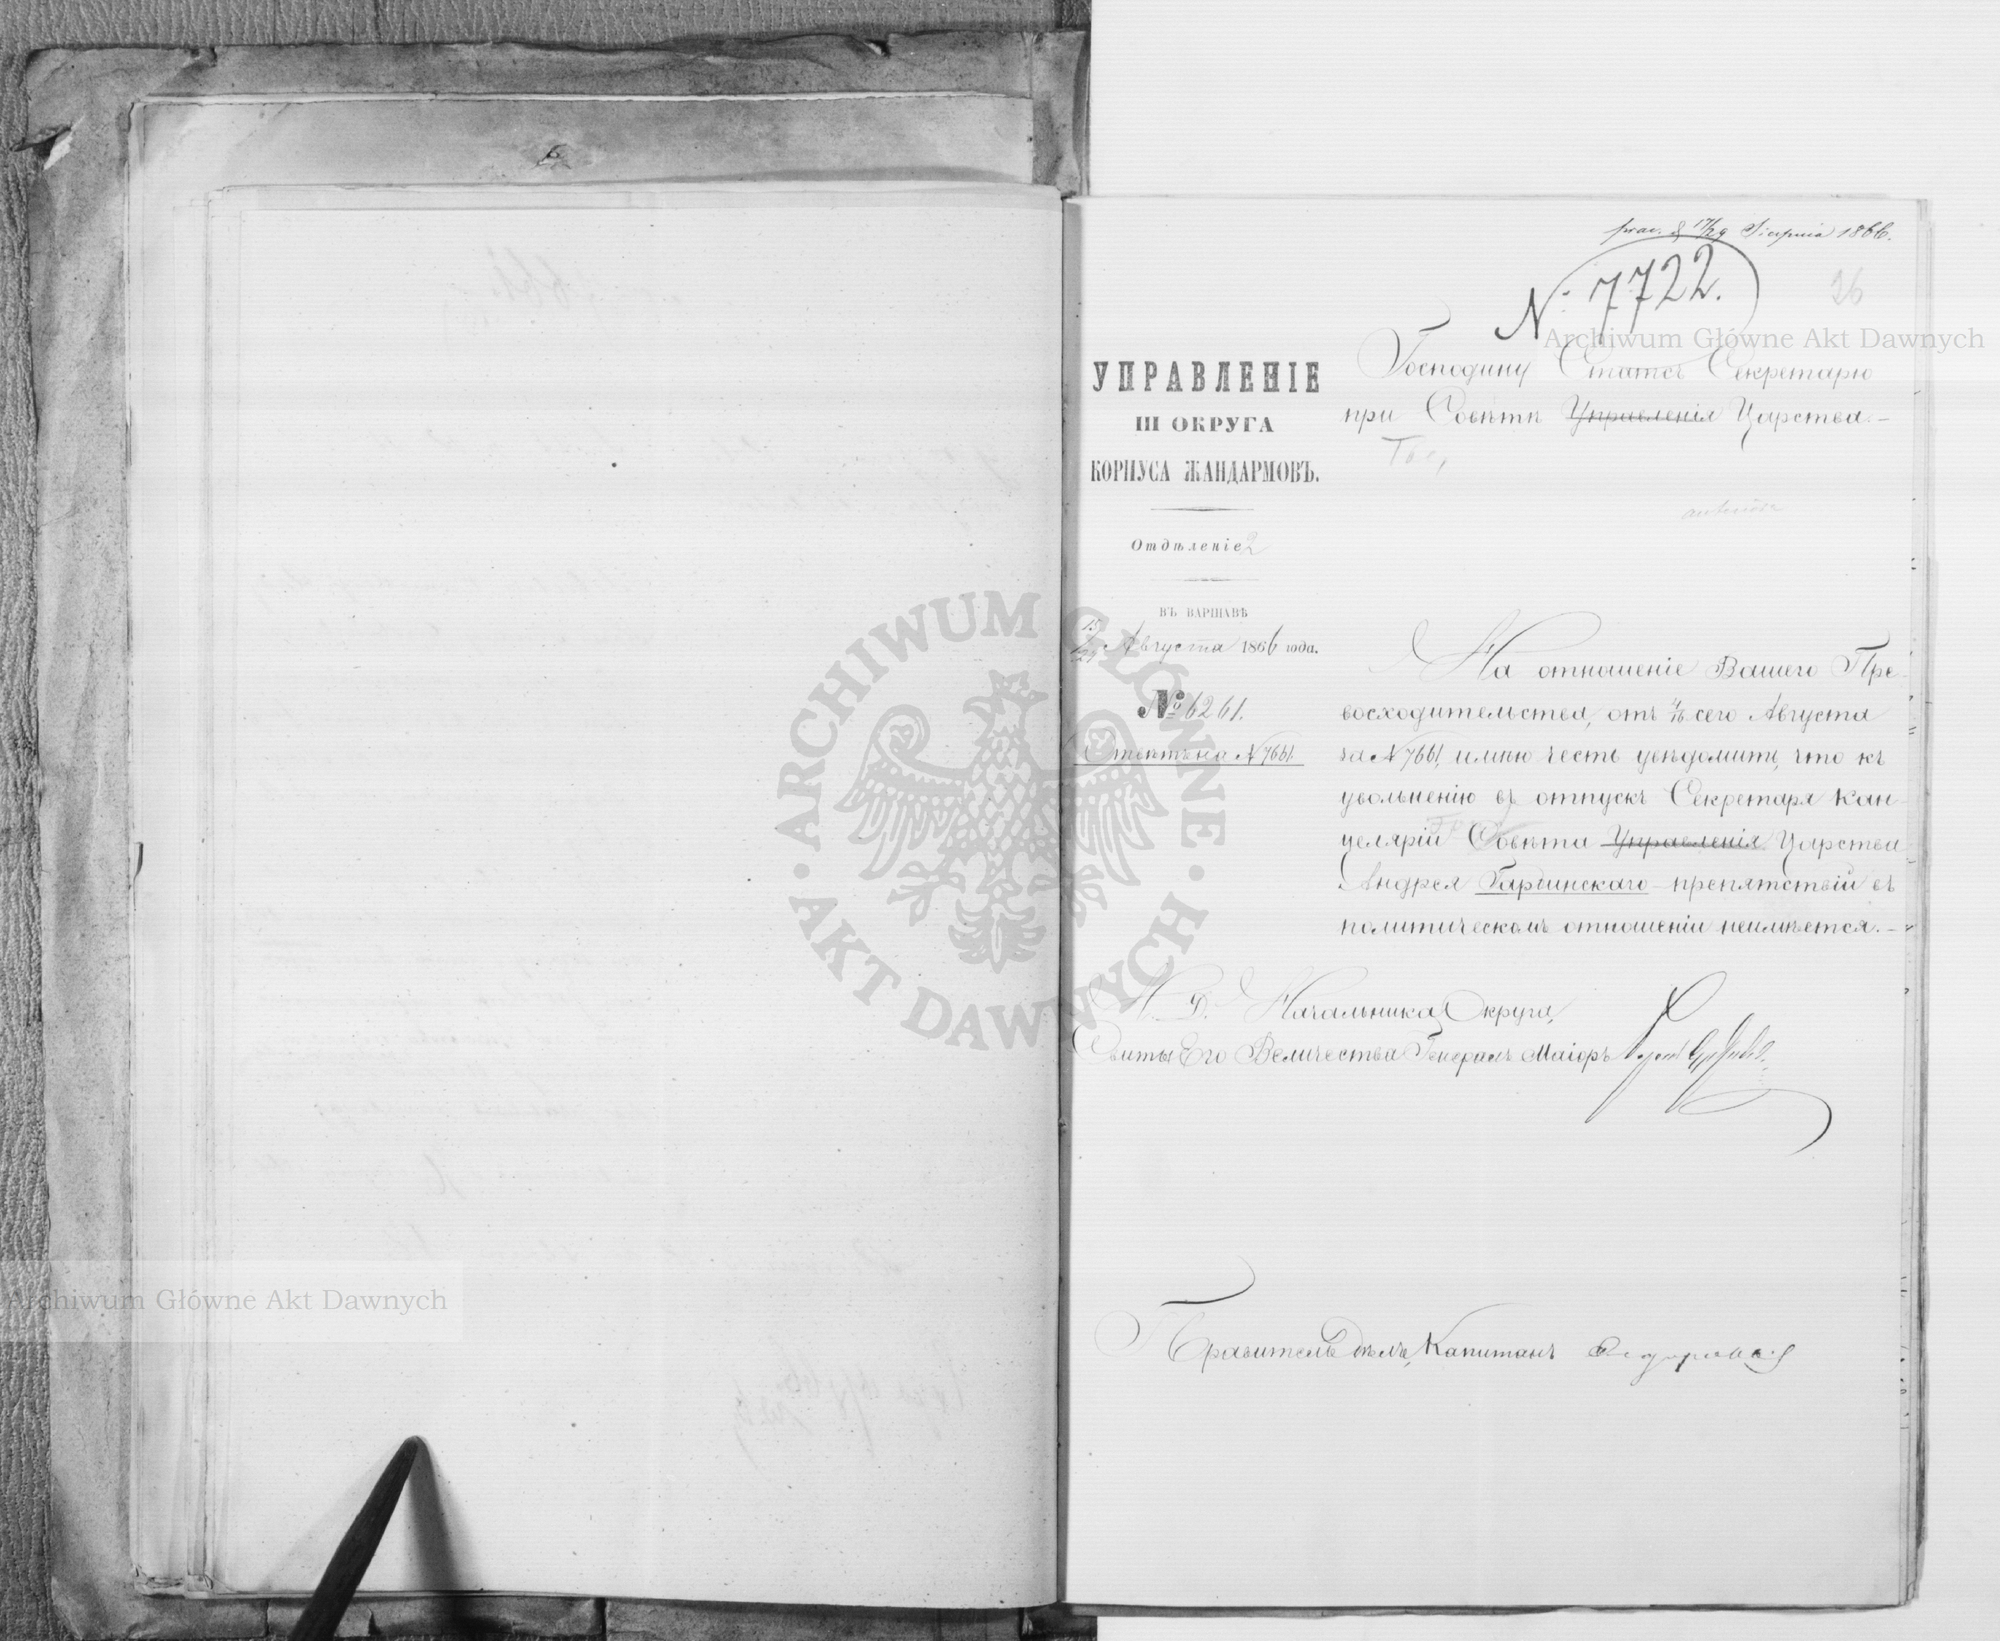 17/29 Sierpnia 1866.
№ 7722.
26
Archiwum Główne Akt Dawnych
Господину Статсъ Секретарю
при Совѣтѣ Управленія Царства.-
УПРАВЛЕНІЕ
III ОКРУГА
КОРПУСА ЖАНДАРМОВЪ.
Отдѣленіе 2
ВЪ ВАРШАВѢ
15/27 Августа 1866 года.
№ 6261.
Отвѣтъ на № 7661.
На отношеніе Вашего Пре-
восходительства, отъ 4/16 сего Августа
за № 7661, имѣю честь увѣдомить, что къ
увольненію въ отпускъ Секретаря Кан-
целяріи Совѣта Управленія Царства
Андрея Гарбинскаго препятствій въ
политическомъ отношеніи неимѣется.-
И. Д. Начальника Округа,
Свиты Его Величества Генералъ Маіоръ
Правитель Дѣлъ, Капитанъ
ARCHIWUM GŁÓWNE · AKT DAWNYCH ·
Archiwum Główne Akt Dawnych